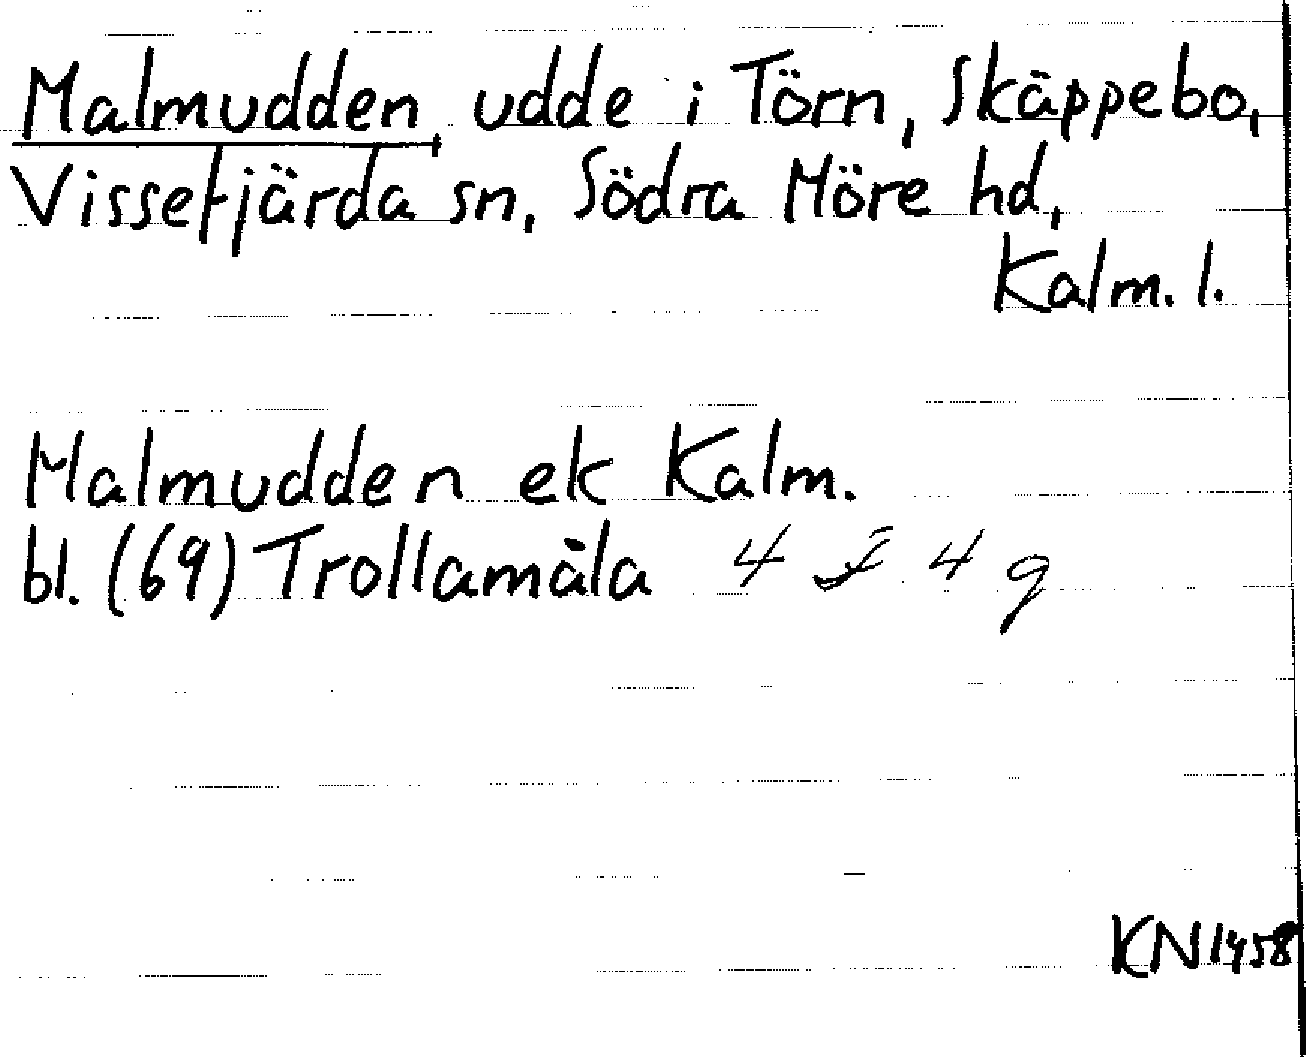 Malmudden, udde i Törn, Skäppebo,
Vissefjärda sn, Södra Möre hd,
Kalm. l.
Malmudden ek Kalm.
bl. (69) Trollamåla 4 F 4 g
KN1458